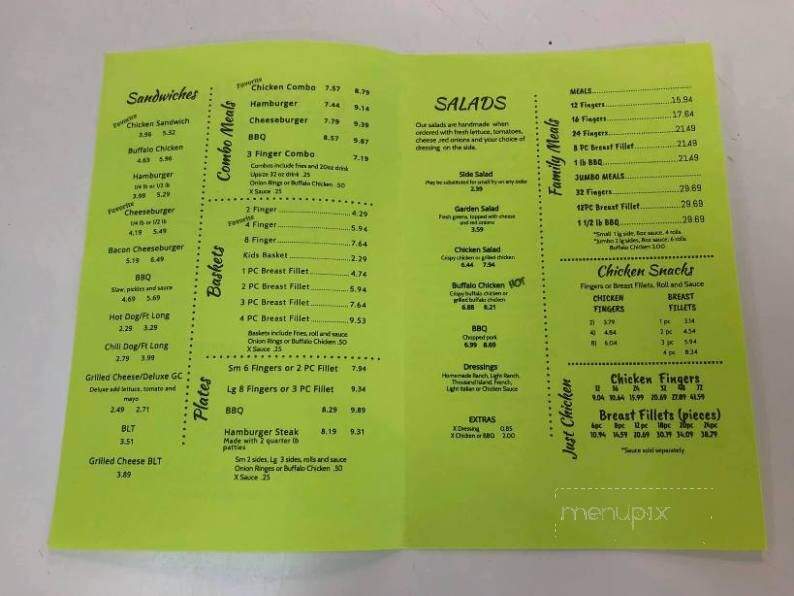 Sandwiches
Favorite
Chicken Sandwich
3.96 5.32
Buffalo Chicken
4.63 5.96
Hamburger
1/4 lb or 1/2 lb
3.99 5.29
Favorite
Cheeseburger
1/4 lb or 1/2 lb
4.19 5.49
Bacon Cheeseburger
5.19 6.49
BBQ
Slaw, pickles and sauce
4.69 5.69
Hot Dog/Ft Long
2.29 3.29
Chili Dog/Ft Long
2.79 3.99
Grilled Cheese/Deluxe GC
Deluxe add lettuce, tomato and
mayo
2.49 2.71
BLT
3.51
Grilled Cheese BLT
3.89
Combo Meals
Favorite
Chicken Combo 7.57 8.79
Hamburger 7.44 9.14
Cheeseburger 7.79 9.39
BBQ 8.57 9.87
3 Finger Combo 7.19
Combos include fries and 20oz drink
Upsize 32 oz drink .25
Onion Rings or Buffalo Chicken .50
X Sauce .25
Baskets
2 Finger 4.29
Favorite
4 Finger 5.94
8 Finger 7.64
Kids Basket 2.29
1 PC Breast Fillet 4.74
2 PC Breast Fillet 5.94
3 PC Breast Fillet 7.64
4 PC Breast Fillet 9.53
Baskets include Fries, roll and sauce
Onion Rings or Buffalo Chicken .50
X Sauce .25
Plates
Sm 6 Fingers or 2 PC Fillet 7.94
Lg 8 Fingers or 3 PC Fillet 9.34
BBQ 8.29 9.89
Hamburger Steak 8.19 9.31
Made with 2 quarter lb
patties
Sm 2 sides, Lg 3 sides, rolls and sauce
Onion Ringes or Buffalo Chicken .50
X Sauce .25
SALADS
Our salads are handmade when
ordered with fresh lettuce, tomatoes,
cheese ,red onions and your choice of
dressing on the side.
Side Salad
May be substituted for small fry on any order
2.99
Garden Salad
Fresh greens, topped with cheese
and red onions
3.59
Chicken Salad
Crispy chicken or grilled chicken
6.44 7.94
Buffalo Chicken HOT
Crispy buffalo chicken or
grilled buffalo chicken
6.88 8.21
BBQ
Chopped pork
6.99 8.69
Dressings
Homemade Ranch, Light Ranch,
Thousand Island, French,
Light Italian or Chicken Sauce
EXTRAS
X Dressing 0.85
X Chicken or BBQ 2.00
Family Meals
MEALS
12 Fingers 15.94
16 Fingers 17.64
24 Fingers 21.49
8 PC Breast Fillet 21.49
1 lb BBQ 21.49
JUMBO MEALS
32 Fingers 29.69
12PC Breast Fillet 29.69
1 1/2 lb BBQ 29.69
*Small 1 lg side, 8oz sauce, 4 rolls
*Jimbo 2 lg sides, 8oz sauce, 6 rolls
Buffalo Chicken 2.00
Chicken Snacks
Fingers or Breast Fillets, Roll and Sauce
CHICKEN BREAST
FINGERS FILLETS
2) 3.79 1 pc 3.14
4) 4.64 2 pc 4.54
8) 6.04 3 pc 5.94
4 pc 8.34
Just Chicken
Chicken Fingers
12 16 24 32 48 72
9.04 10.64 15.99 20.69 27.89 41.59
Breast Fillets (pieces)
6pc 8pc 12 pc 18pc 20pc 24pc
10.94 14.59 20.69 30.19 34.09 38.79
*Sauce sold separately
menupix